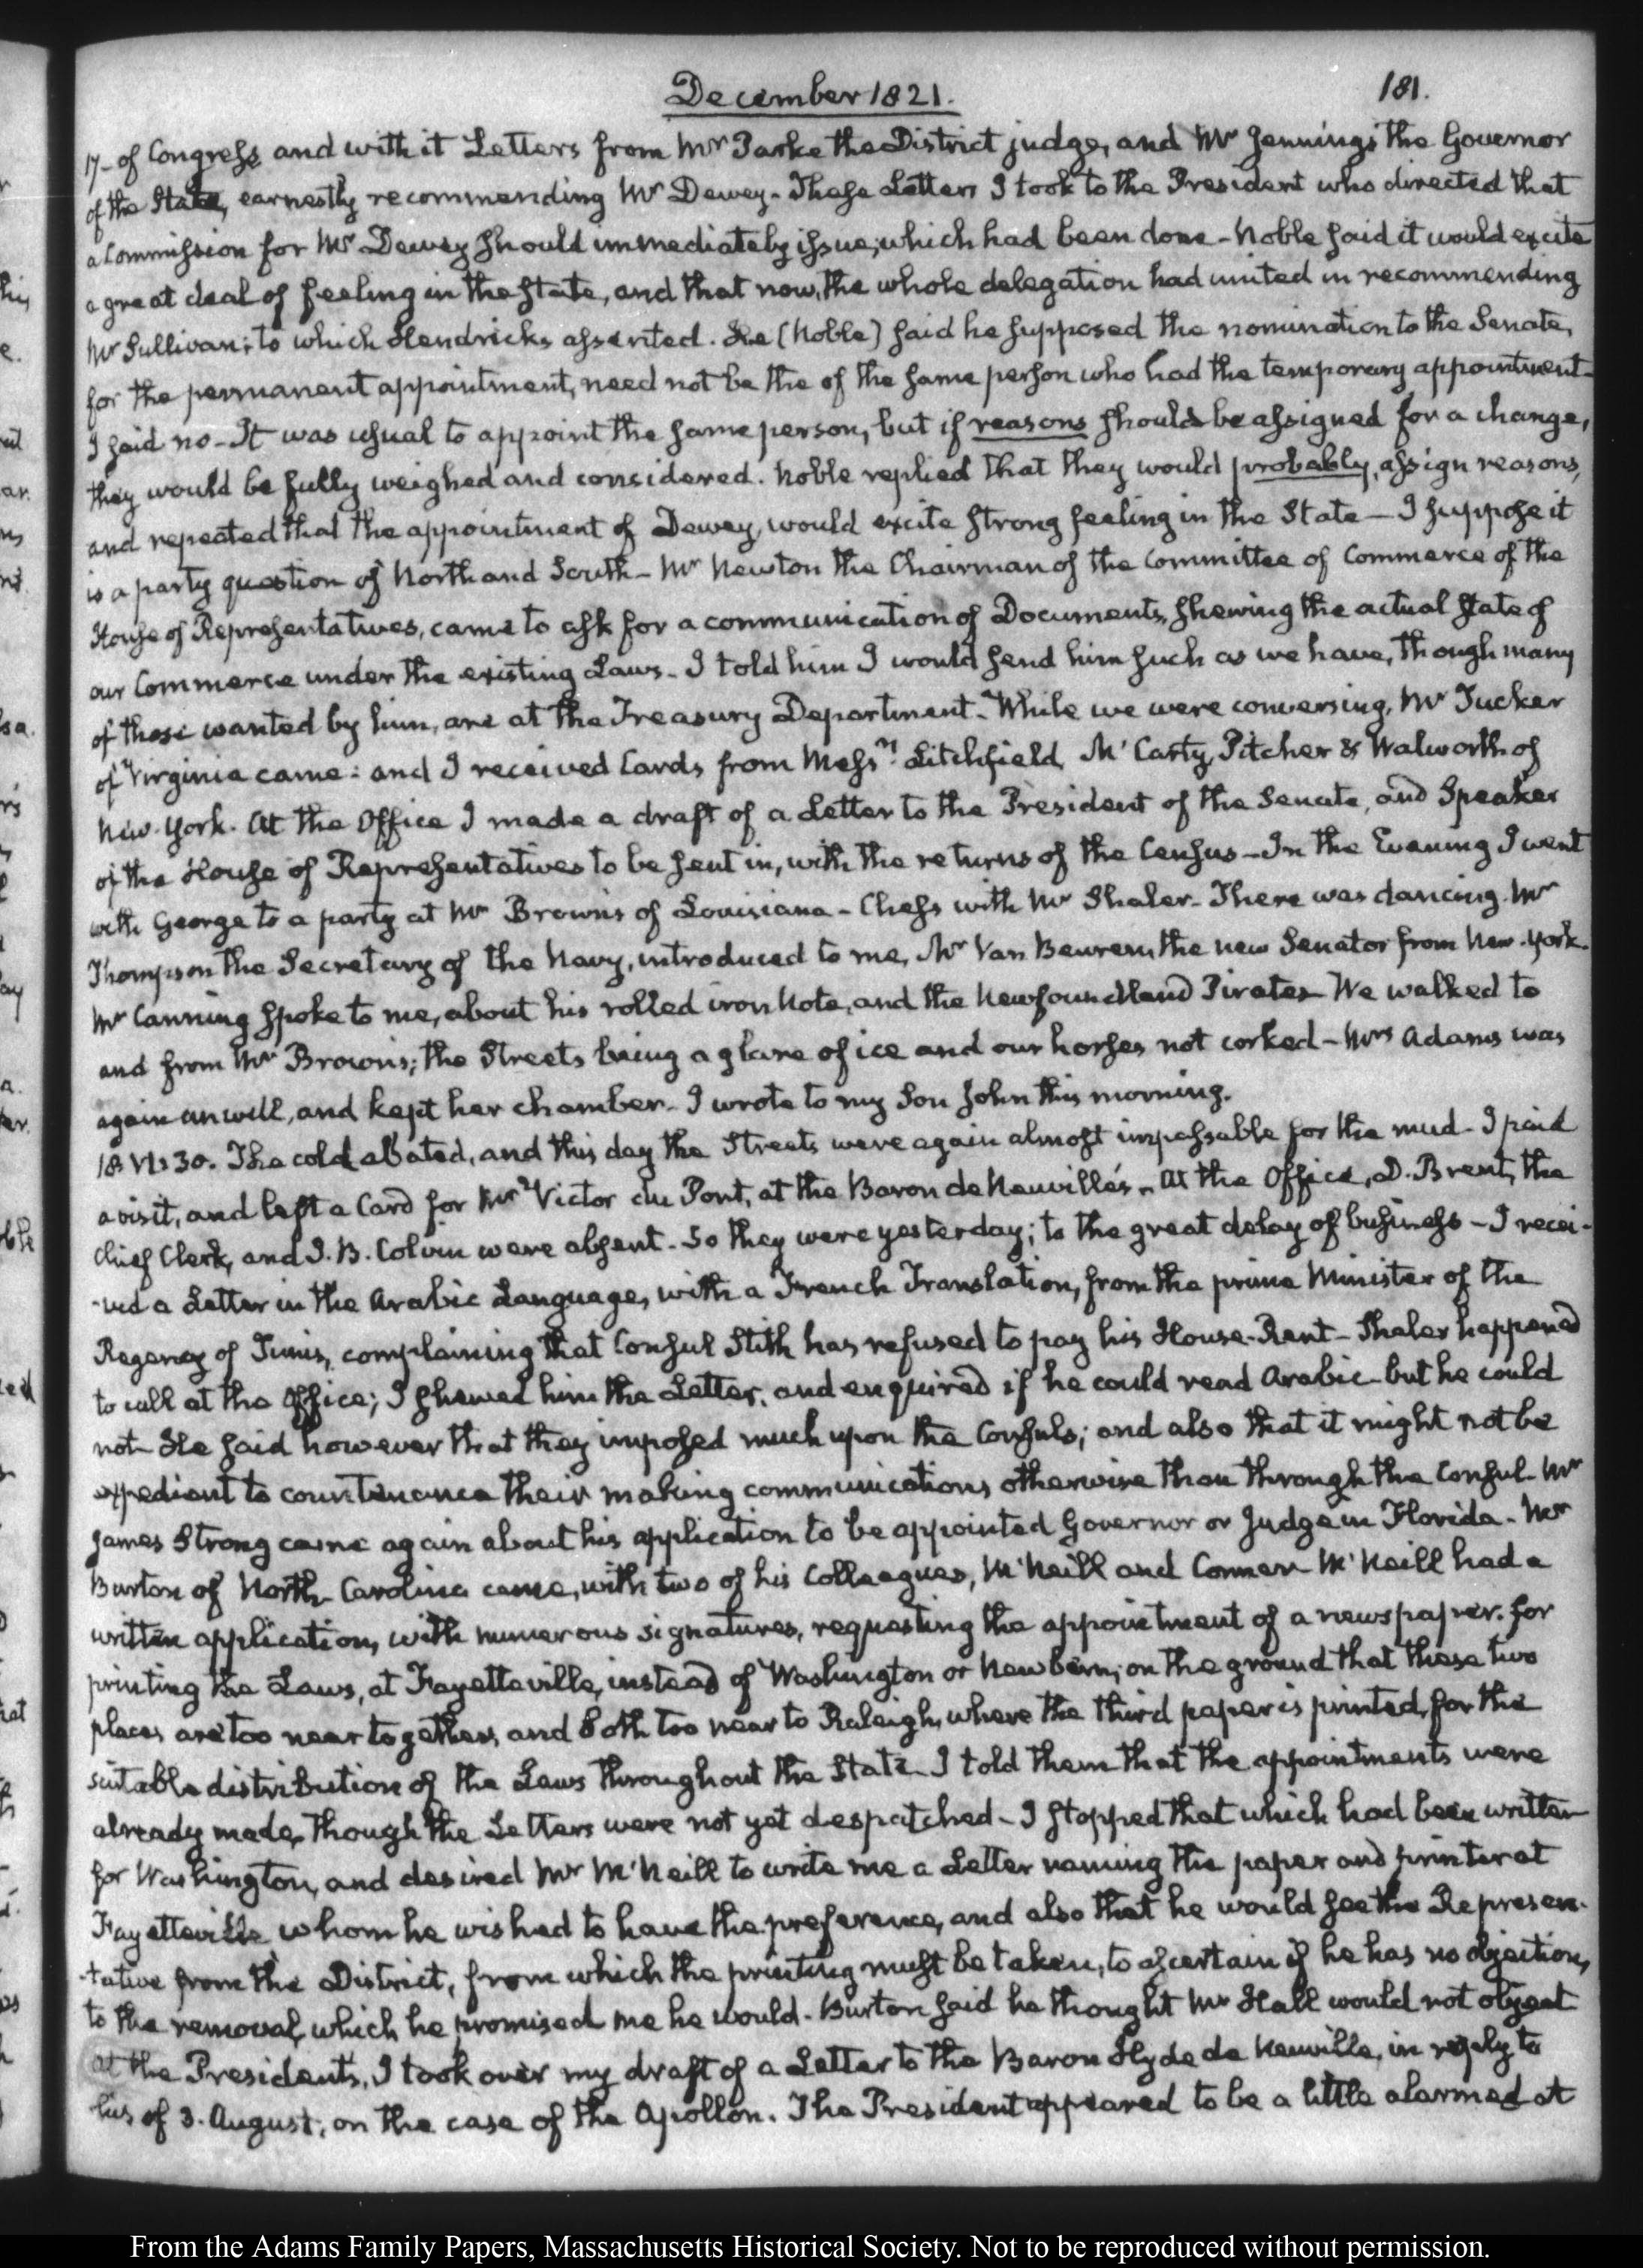 December 1821.
181.
17- of Congress and with it Letters from Mr Parke the District judge, and Mr Jennings the Governor
of the State, earnestly recommending Mr Dewey- These Letters I took to the President who directed that
a Commission for Mr Dewey should immediately issue; which had been done- Noble said it would excite
a great deal of feeling in the State, and that now, the whole delegation had united in recommending
Mr Sullivan; to which Hendricks assented. He (Noble) said he supposed the nomination to the Senate,
for the permanent appointment, need not be the of the same person who had the temporary appointment-
I said no- It was usual to appoint the same person, but if reasons should be assigned for a change,
they would be fully weighed and considered. Noble replied that they would probably, assign reasons,
and repeated that the appointment of Dewey, would excite strong feeling in the State- I suppose it
is a party question of North and South- Mr Newton the Chairman of the Committee of Commerce of the
House of Representatives, came to ask for a communication of Documents, shewing the actual state of
our Commerce under the existing Laws- I told him I would send him such as we have, though many
of those wanted by him, are at the Treasury Department- While we were conversing, Mr Tucker
of Virginia came: and I received Cards from Messrs Litchfield, McCarty, Pitcher & Walworth of
New-York. At the Office I made a draft of a Letter to the President of the Senate, and Speaker
of the House of Representatives to be sent in, with the returns of the Census- In the Evening I went
with George to a party at Mr Brown's of Louisiana- Chess with Mr Shaler- There was dancing. Mr
Thompson the Secretary of the Navy, introduced to me, Mr Van Beuren, the new Senator from New-York.
Mr Canning spoke to me, about his rolled iron Note, and the Newfoundland Pirates- We walked to
and from Mr Brown's; the Streets being a glare of ice and our horses not corked- Mrs Adams was
again unwell, and kept her chamber- I wrote to my Son John this morning.
18. VI:30. The cold abated, and this day the Streets were again almost impassable for the mud- I paid
a visit, and left a Card for Mr Victor du Pont, at the Baron de Neuville's- At the Office, D. Brent, the
chief Clerk, and J. B. Colvin were absent- So they were yesterday; to the great delay of business- I recei-
-ved a Letter in the Arabic Language, with a French Translation, from the prime Minister of the
Regency of Tunis, complaining that Consul Stith has refused to pay his House-Rent- Shaler happened
to call at the Office; I shewed him the Letter, and enquired if he could read Arabic- but he could
not- He said however that they imposed much upon the Consuls; and also that it might not be
expedient to countenance their making communications otherwise than through the Consul- Mr
James Strong came again about his application to be appointed Governor or Judge in Florida- Mr
Burton of North-Carolina came, with two of his Colleagues, McNeill and Conner- McNeill had a
written application, with numerous signatures, requesting the appointment of a newspaper, for
printing the Laws, at Fayetteville, instead of Washington or Newbern; on the ground that these two
places are too near together, and both too near to Raleigh, where the third paper is printed, for the
suitable distribution of the Laws throughout the State- I told them that the appointments were
already made, though the Letters were not yet despatched- I stopped that which had been written
for Washington, and desired Mr McNeill to write me a Letter naming the paper and printer at
Fayetteville whom he wished to have the preference, and also that he would see the Represen-
-tative from the District, from which the printing must be taken, to ascertain if he has no objection,
to the removal, which he promised me he would- Burton said he thought Mr Hall would not object
At the President's, I took over my draft of a Letter to the Baron Hyde de Neuville, in reply to
his of 3. August, on the case of the Apollon. The President appeared to be a little alarmed at
From the Adams Family Papers, Massachusetts Historical Society. Not to be reproduced without permission.